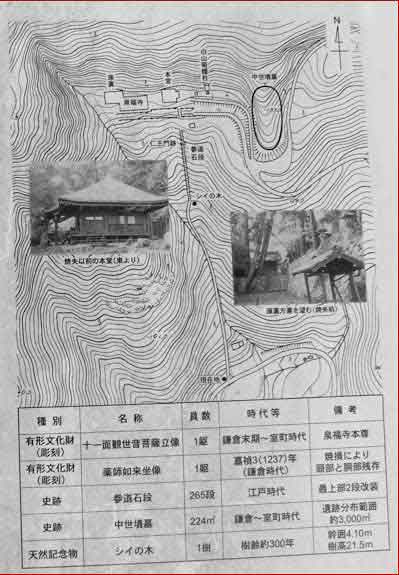 N
中世墳墓
本堂
庫裏
泉福寺
仁王門跡
参道石段
シイの木
焼失以前の本堂(東より)
現在地
種別 名称 員数 時代等 備考
有形文化財(彫刻) 十一面観世音菩薩立像 1躯 鎌倉末期～室町時代 泉福寺本尊
有形文化財(彫刻) 薬師如来坐像 1躯 嘉禎3(1237)年(鎌倉時代) 焼損により頭部と胴部残存
史跡 参道石段 265段 江戸時代 最上部2段改装
史跡 中世墳墓 224㎡ 鎌倉～室町時代 遺跡分布範囲約3,000㎡
天然記念物 シイの木 1樹 樹齢約300年 幹囲4.10m樹高21.5m